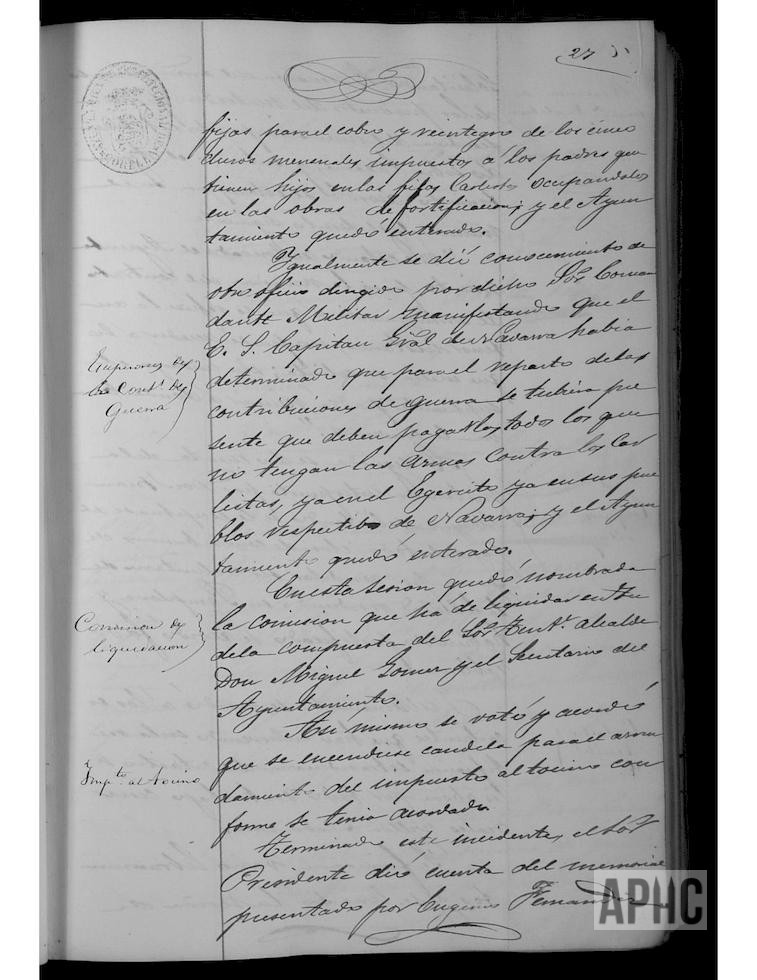 27
fijas para el cobro y reintegro de los cinco
duros mensuales impuestos á los padres que
tienen hijos en las filas Carlistas ocupandolos
en las obras de fortificacion; y el Ayun
tamiento quedó enterado.
Igualmente se dió conocimiento de
otro oficio dirigido por dicho Sor. Coman
dante Militar manifestando que el
E. S. Capitan Gral de Navarra habia
determinado que para el reparto de las
contribuciones de guerra se tubiera pre
sente que deben pagarlas todos los que
no tengan las armas contra los Car
listas, ya en el Egercito ya en sus pue
blos respectibos de Navarra; y el Ayun
tamiento quedó enterado.
En esta sesion quedó nombrada
la comision que há de liquidar
compuesta del Sor. Tente. Alcalde
Don Miguel Gomez y el Secretario del
Ayuntamiento.
Asi mismo se votó y acordó
que se encendiese candela para el arren
damiento del impuesto al tocino con
forme se tenia acordado.
Terminado este incidente, el Sor.
Presidente dió cuenta del memorial
presentado por Eugenio Fernandez
la Cont. de
Guerra
Comision de
liquidacion
Impto. al tocino
APHC